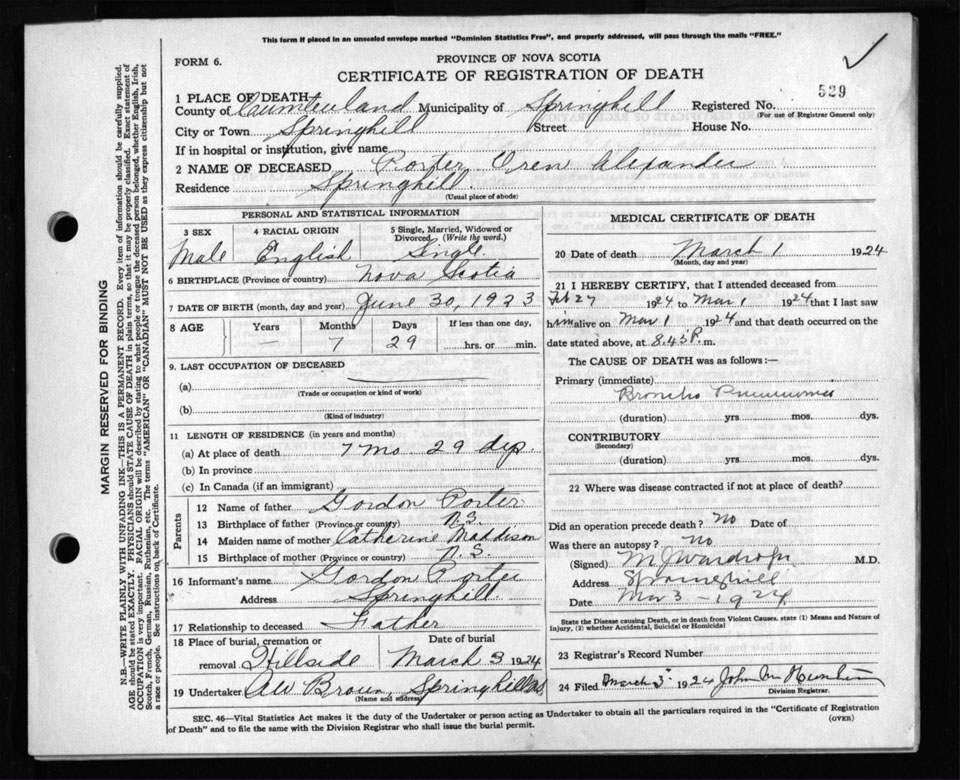 This form if placed in an unsealed envelope marked "Dominion Statistics Free", and properly addressed, will pass through the mails "FREE."
FORM 6.
PROVINCE OF NOVA SCOTIA
CERTIFICATE OF REGISTRATION OF DEATH
1 PLACE OF DEATH
County of Cumberland Municipality of Springhill Registered No. 529
(For use of Registrar General only)
City or Town Springhill Street House No.
If in hospital or institution, give name
2 NAME OF DECEASED Porter Oren Alexander
Residence Springhill.
(Usual place of abode)
PERSONAL AND STATISTICAL INFORMATION
3 SEX 4 RACIAL ORIGIN 5 Single, Married, Widowed or Divorced (Write the word.)
Male English Single.
6 BIRTHPLACE (Province or country) Nova Scotia
7 DATE OF BIRTH (month, day and year) June 30, 1923
8 AGE Years Months Days If less than one day,
— 7 29 hrs. or min.
9. LAST OCCUPATION OF DECEASED
(a)
(Trade or occupation or kind of work)
(b)
(Kind of industry)
11 LENGTH OF RESIDENCE (in years and months)
(a) At place of death 7 mo 29 dys.
(b) In province
(c) In Canada (if an immigrant)
Parents
12 Name of father Gordon Porter
13 Birthplace of father (Province or country) N.S.
14 Maiden name of mother Catherine Maddison
15 Birthplace of mother (Province or country) N.S.
16 Informant's name Gordon Porter
Address Springhill
17 Relationship to deceased Father
18 Place of burial, cremation or Date of burial
removal Hillside March 3 1924
19 Undertaker AW Brown, Springhill N.S.
(Name and address)
MEDICAL CERTIFICATE OF DEATH
20 Date of death March 1 1924
(Month, day and year)
21 I HEREBY CERTIFY, that I attended deceased from
Feb 27 1924 to Mar 1 1924 that I last saw
him alive on Mar 1 1924 and that death occurred on
date stated above, at 8.45 P. m.
The CAUSE OF DEATH was as follows:—
Primary (immediate)
Broncho Pneumonia
(duration) yrs mos. dys.
CONTRIBUTORY
(Secondary)
(duration) yrs. mos. dys.
22 Where was disease contracted if not at place of death?
Did an operation precede death? No Date of
Was there an autopsy? No
(Signed) M J Wardrope M.D.
Address Springhill
Date Mar 3 - 1924
State the Disease causing Death, or in death from Violent Causes, state (1) Means and Nature of
Injury, (2) whether Accidental, Suicidal or Homicidal
23 Registrar's Record Number
24 Filed March 3 1924 John
Division Registrar.
SEC. 46—Vital Statistics Act makes it the duty of the Undertaker or person acting as Undertaker to obtain all the particulars required in the "Certificate of Registration
of Death" and to file the same with the Division Registrar who shall issue the burial permit.
(OVER)
MARGIN RESERVED FOR BINDING
N.B.—WRITE PLAINLY WITH UNFADING INK—THIS IS A PERMANENT RECORD. Every item of information should be carefully supplied.
AGE should be stated EXACTLY. PHYSICIANS should STATE CAUSE OF DEATH in plain terms, so that it may be properly classified. Exact statement of
OCCUPATION is very important. RACIAL ORIGIN will be described by stating to what people or tongue the deceased person belonged, whether English, Irish,
Scotch, French, German, Russian, Ruthenian, etc. The terms "AMERICAN" OR "CANADIAN" MUST NOT BE USED as they express citizenship but not
a race or people. See instructions on back of Certificate.